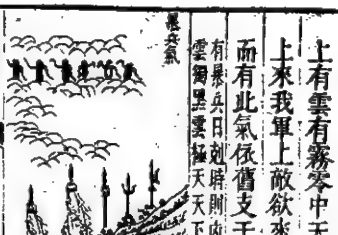 上有雲有霧零中天
上來我軍上敵欲來
而有此氣依舊支干
有暴兵日剋時則內
雲獨黑雲極天天下
暴兵氣